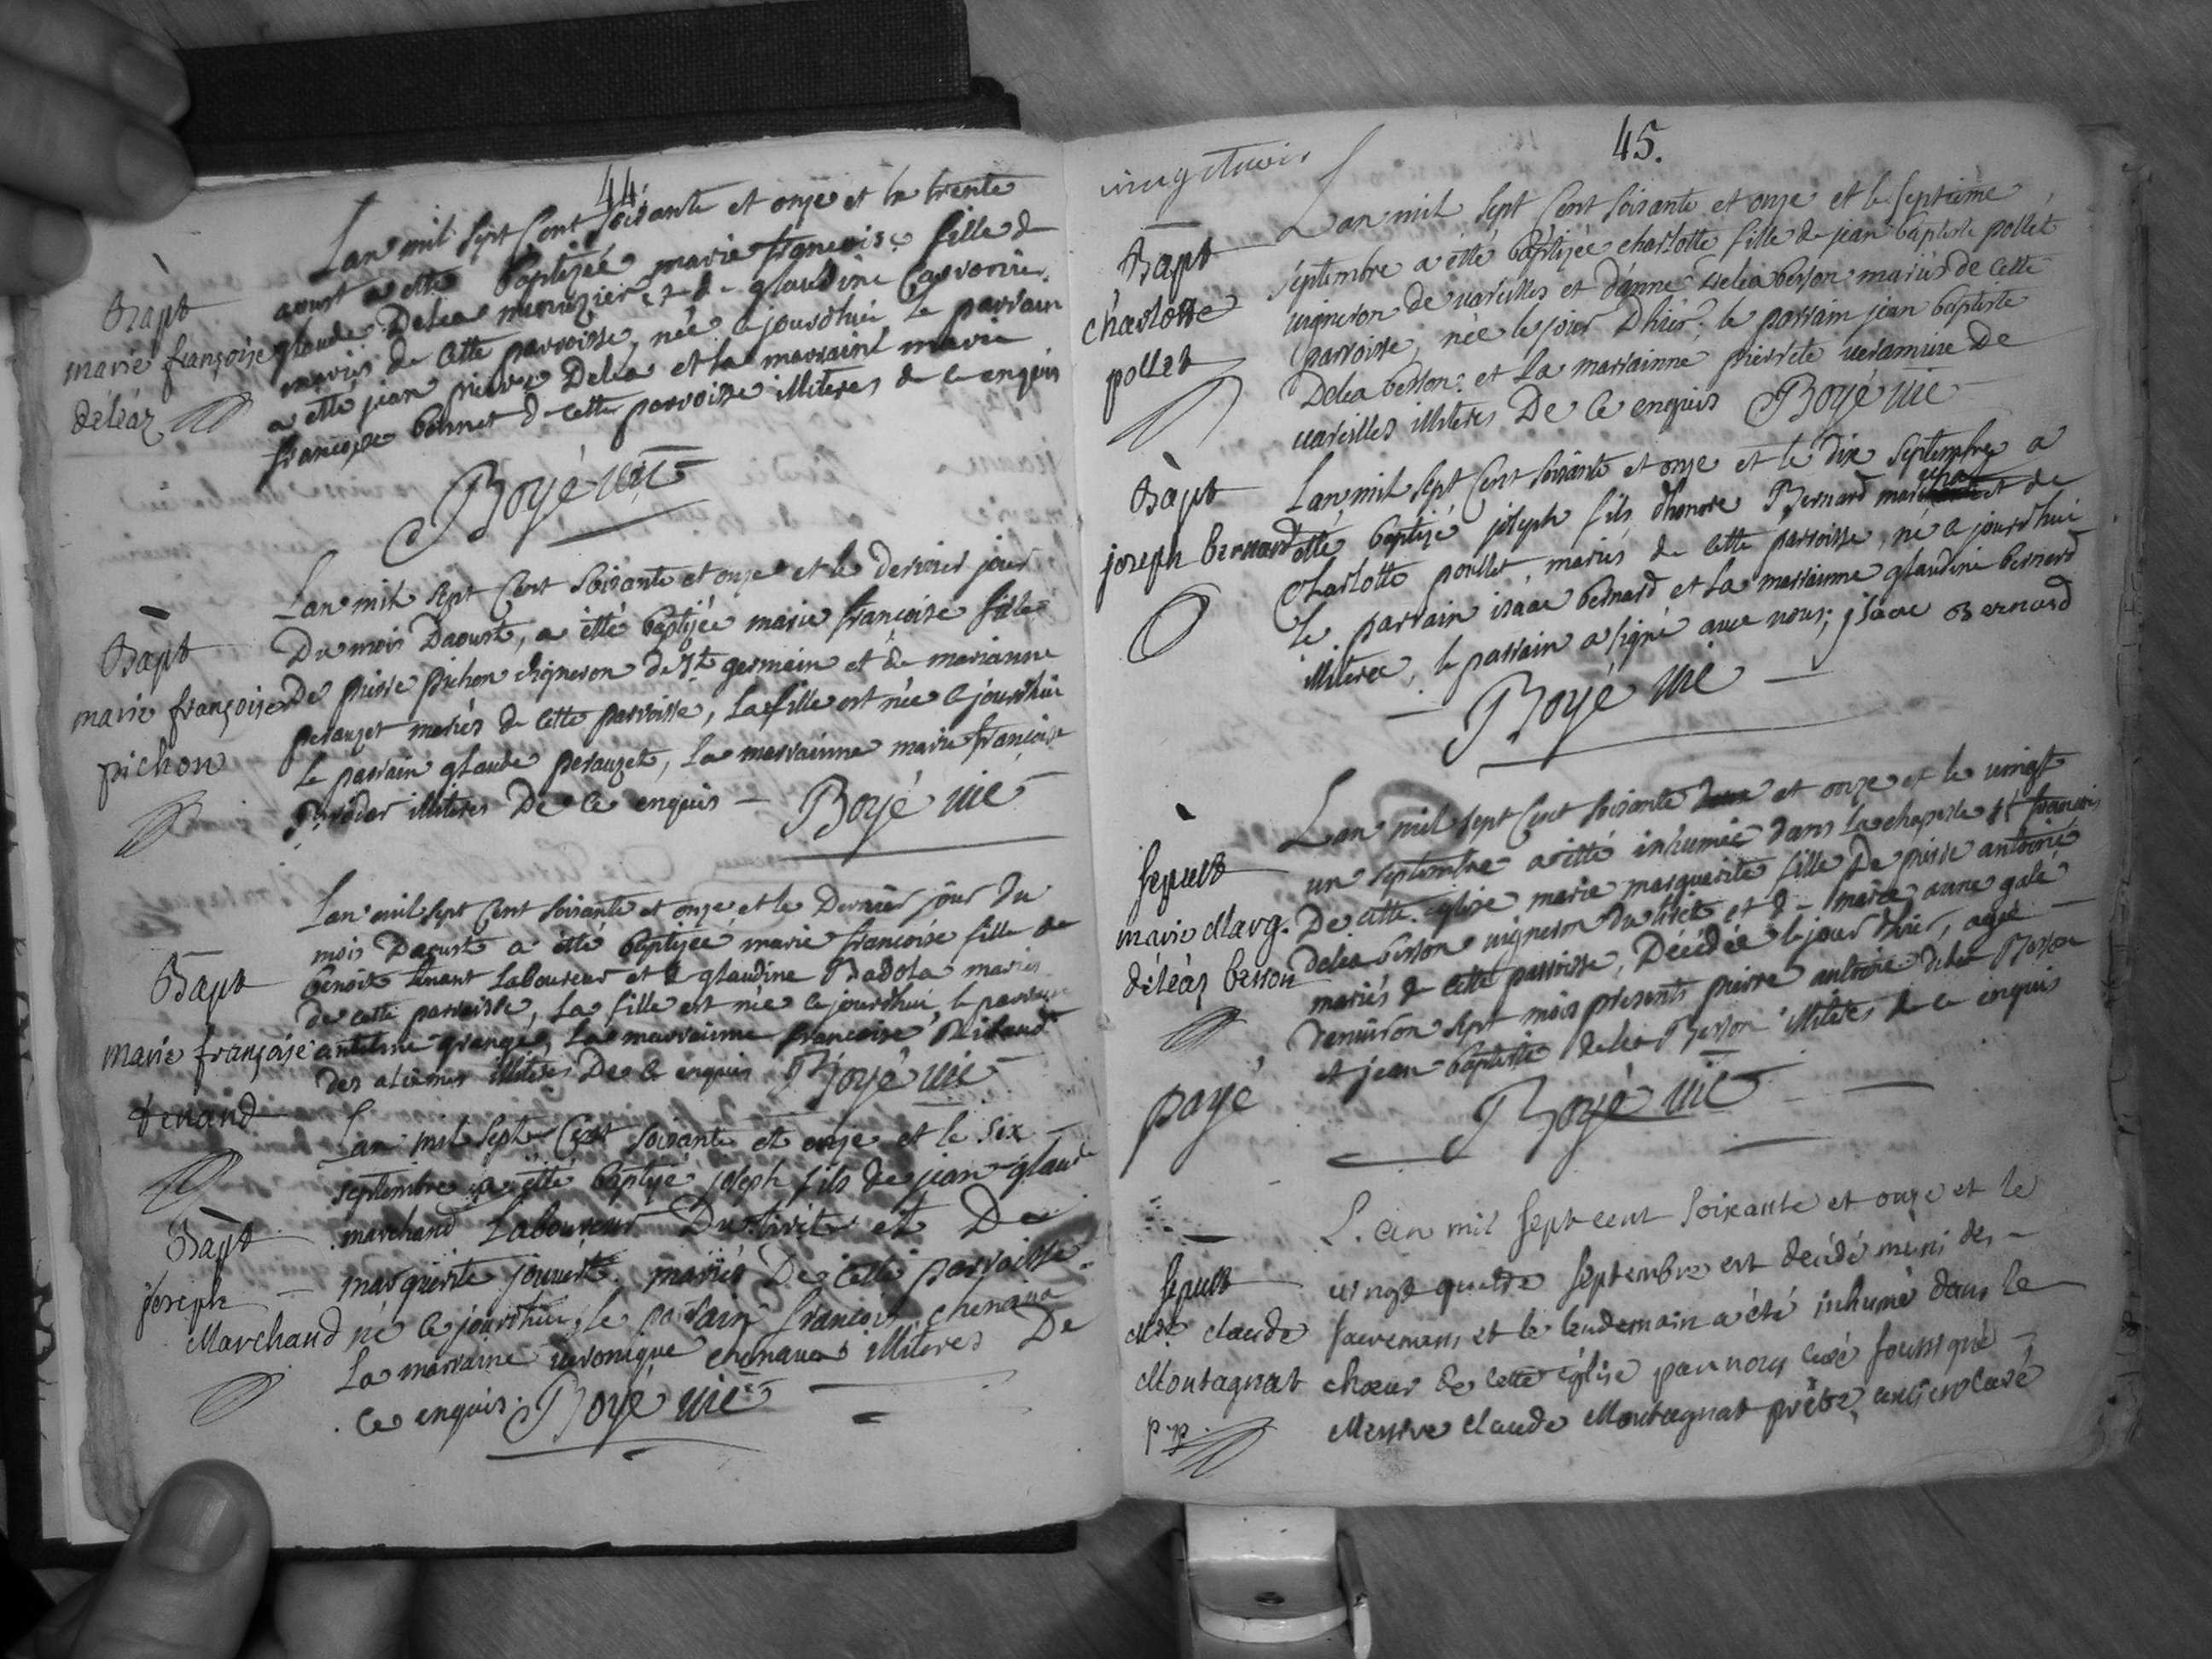 44.
Bapt
marie françoise
déléaz
Lan mil sept Cent soixante et onze et le trente
aoust a etté baptizée marie francoise fille de
glaude Delea menuzier et de glaudine
mariés de cette parroisse, née ce jourdhui le parrain
a etté jean pierre Delea et la marraine marie
françoise bonnet de cette parroisse illiteres de ce enquis
Boyé vic
Bapt
marie françoise
pichon
Lan mil sept Cent soixante et onze et le dernier jour
Du mois Daoust, a etté baptizée marie francoise fille
De pierre pichon vigneron de st germain et de marianne
perauzet mariés de cette parroisse, la fille est née ce jourdhui
le parrain glaude perauzet, la marrainne marie françoise
illiteres De ce enquis — Boyé vic
Bapt
marie françoise
tenand
Lan mil sept Cent soixante et onze et le Dernier jour du
mois Daoust a etté baptizée marie francoise fille de
benoit tenant Laboureur et de glaudine Badola mariés
de cette parroisse, La fille est née ce jourdhui, le parrain
antelme grange, la marrainne francoise
des alimes illiteres De ce enquis Boyé vic
Bapt
joseph
Marchand
Lan mil sept Cent soixante et onze et le six
septembre a etté baptizé joseph fils de jean glaude
marchand Laboureur Du tiret et De
marguerite jouvent mariés De cette parroisse.
né ce jourdhui, le parrain francois chenaux
La marraine veronique chenaux illiteres De
ce enquis. Boyé vic
45.
vingttrois
Bapt
charlotte
pollet
Lan mil sept Cent soixante et onze et le septieme
septembre a étté baptizée charlotte fille de jean baptiste pollet
vigneron de vareilles et d'anne delea besson mariés de cette
parroisse, née le jour Dhier. le parrain jean baptiste
Delea besson. et La marrainne pierrete veramiere De
vareilles illiteres De Ce enquis Boyé vic
Bapt
joseph bernard
Lan mil sept Cent soixante et onze et le dix septembre a
etté baptizé joseph fils dhonore Bernard et de
Charlotte poullet mariés de cette parroisse, né ce jourdhui
le parrain isaac bernard et la marrainne glaudine bernard
illiteree, le parrain a signé avec nous; jsaac Bernard
Boyé vic
Sepult
marie Marg.
déléaz besson
payé
Lan mil sept Cent soixante et onze et le vingt
un septembre a etté inhumée dans la chapelle st francois
De cette eglise marie marguerite fille De pierre antoine
delea besson vigneron du tiret et de marie anne galé
mariés de cette parroisse, Décédée le jour dhier, agée
denviron sept mois presents pierre antoine delea Besson
et jean baptiste delea Besson illiteres de ce enquis
Boyé vic
Sepult
Mre claude
Montagnat
L'an mil sept cent soixante et onze et le
vingt quatre septembre est decédé muni des
sacremens et le lendemain a été inhumé dans le
chœur de cette église par nous curé soussigné
Messire claude Montagnat prêtre, ancien curé